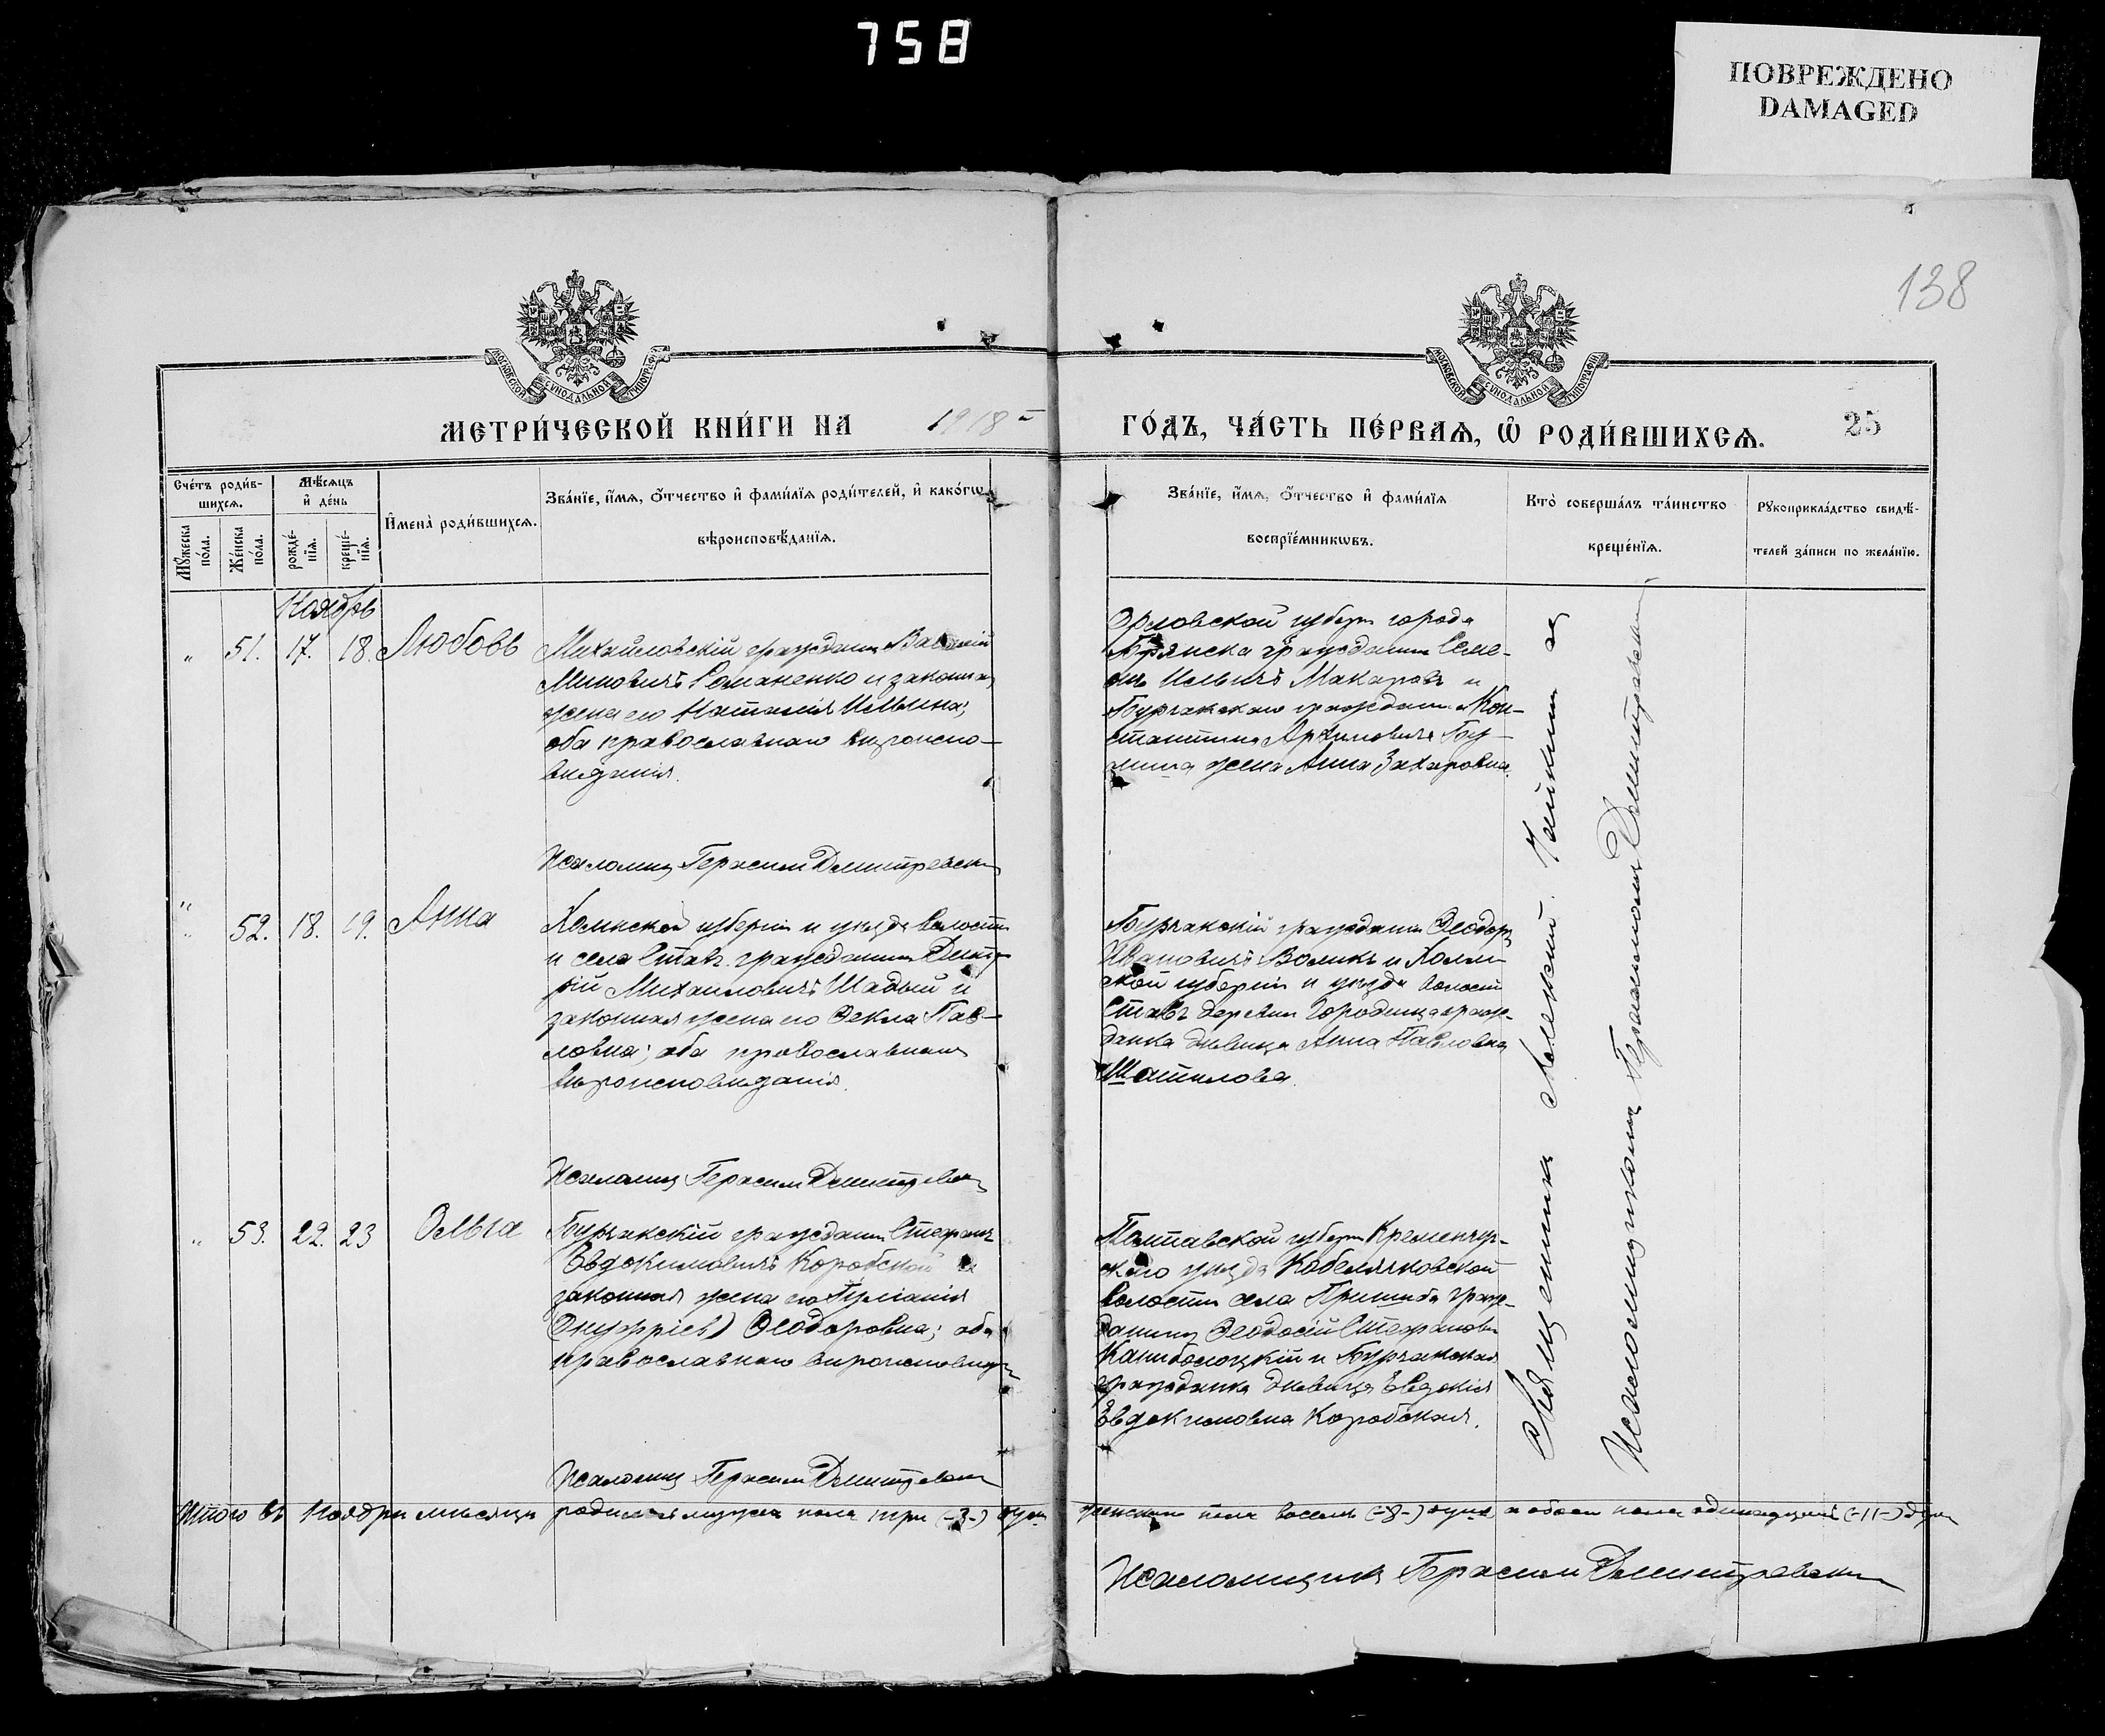 758
ПОВРЕЖДЕНО
DAMAGED
138
МОСКОВСКОЙ СѴНОДАЛЬНОЙ ТИПОГРАФІИ
МОСКОВСКОЙ СѴНОДАЛЬНОЙ ТИПОГРАФІИ
МЕТРИ́ЧЕСКОЙ КНИ́ГИ НА 1918 ГО́ДЪ, ЧА́СТЬ ПЕ́РВАѦ, Ѽ РОДИ́ВШИХСѦ. 25
Сче́тъ роди́в-
шихсѧ.
Мꙋ́жеска
по́ла.
Же́нска
по́ла.
Мѣ́сѧцъ
и҆ де́нь
рожде́-
нїѧ.
креще́-
нїѧ.
И҆мена̀ роди́вшихсѧ.
Зва́нїе, и҆́мѧ, ѻ҆́тчество и҆ фами́лїѧ роди́телей, и҆ како́гѡ
вѣроисповѣ́данїѧ.
Зва́нїе, и҆́мѧ, ѻ҆́тчество и҆ фами́лїѧ
воспрїе́мникѡвъ.
Кто̀ соверша́лъ та́инство
креще́нїѧ.
Рꙋкоприкла́дство свидѣ́-
телей за́писи по жела́нїю.
Ноябрь
" 51. 17. 18. Любовь
Михайловскій гражданин
Миновичъ Романенко и законная
жена его Наталія Ильина;
оба православнаго вѣроиспо-
вѣданія.
Псаломщ Герасим Димитревскій
Орловской губерн города
Брянска гражданин Семе-
онъ Ильичъ Макаровъ и
Бурчакскаго гражданина Кон-
стантина Архиповича
жена Анна Захаровна.
" 52. 18. 19. Анна
Холмской губерніи и уѣзда волости
и села Ставъ гражданин Димит-
рій Михаиловичъ Шадый и
законная жена его Фекла Пав-
ловна; оба православнаго
вѣроисповѣданія.
Псаломщ Герасим Димитревскій
Бурчакскій гражданин Феодоръ
Ивановичъ Воликъ и Холм-
ской губерніи и уѣзда волости
Ставъ деревни Городища граж-
данка дѣвица Анна Павловна
Шатилова.
" 53. 22. 23 Ольга
Бурчакскій гражданин Стефанъ
Евдокимовичъ Коробской и
законная жена его Іуліанія
Феодоровна; оба
православнаго вѣроисповѣд
Псаломщ Герасим Димитревскій
Полтавской губерн Кременчуг-
скаго уѣзда Кобелячковской
волости села Пришиба граж-
данинъ Феодосій Стефанови
Каниболоцкій и Бурчакская
гражданка дѣвица Евдокія
Евдокимовна Коробская.
Священникъ Алексій Чайкинъ
Псаломщикомъ Герасимомъ Димитревскимъ
Итого въ Ноябрѣ мѣсяцѣ родилося мужск пола три (-3-) души женскаго пола восемь (-8-) душъ, а обоего пола одинадцать (-11-) душъ
Псаломщикъ Герасим Димитревскій